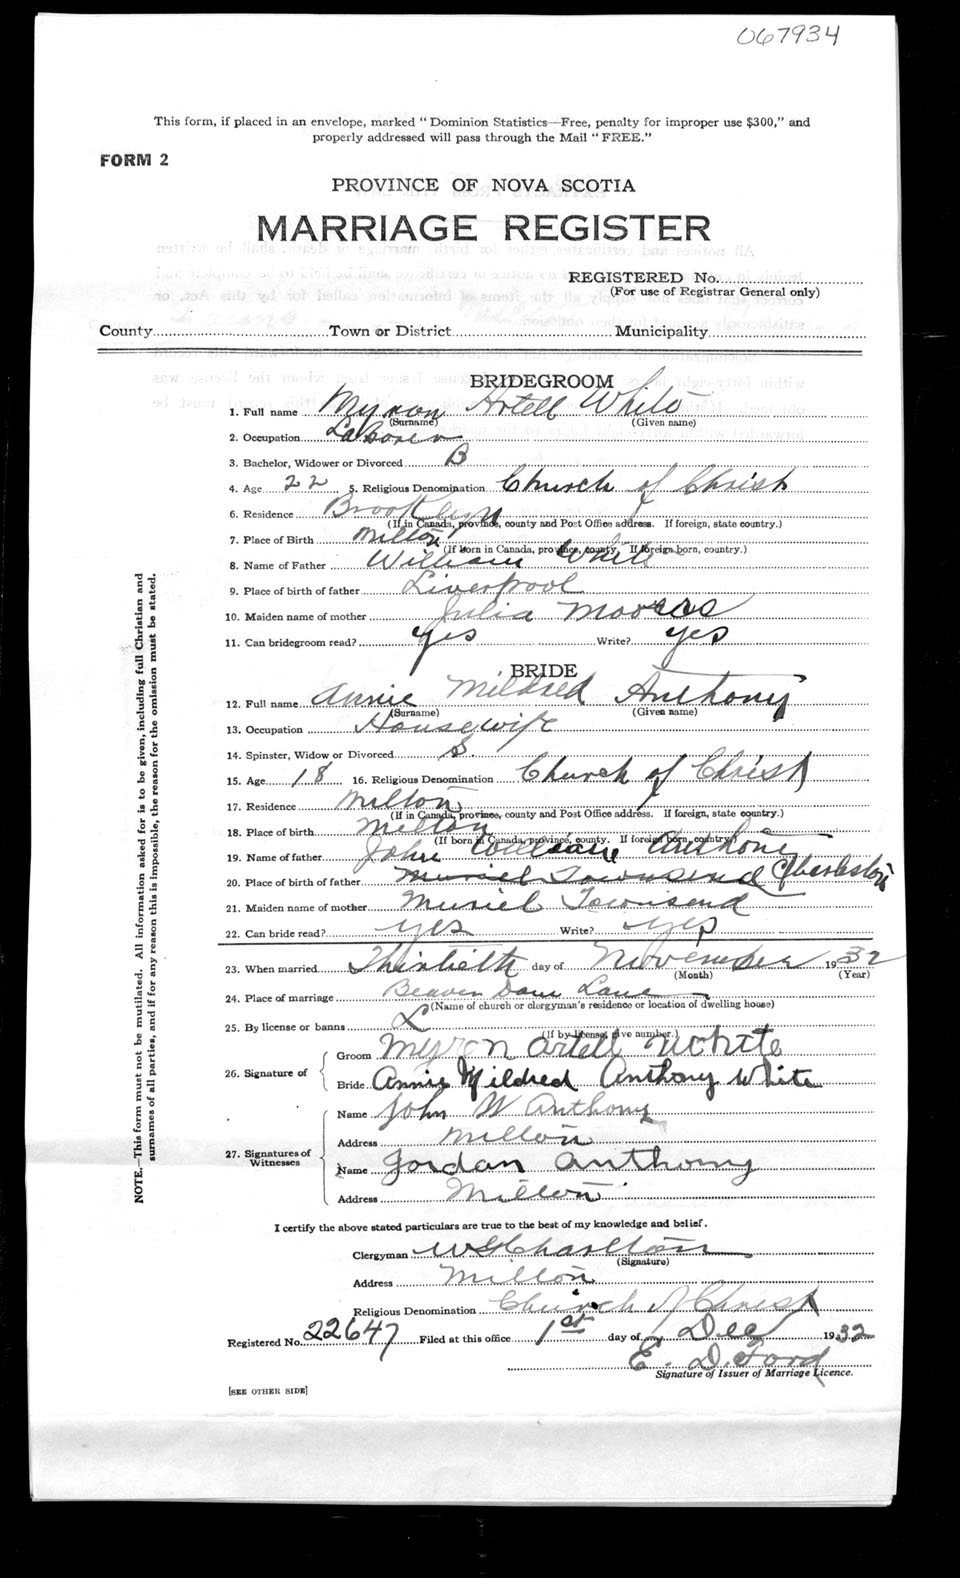 067934
This form, if placed in an envelope, marked "Dominion Statistics—Free, penalty for improper use $300," and
properly addressed will pass through the Mail "FREE."
FORM 2
PROVINCE OF NOVA SCOTIA
MARRIAGE REGISTER
REGISTERED No.
(For use of Registrar General only)
County Town or District Municipality
BRIDEGROOM
1. Full name Myron Artell White
(Surname) (Given name)
2. Occupation Laborer
3. Bachelor, Widower or Divorced B
4. Age 22 5. Religious Denomination Church of Christ
6. Residence Brooklyn
(If in Canada, province, county and Post Office address. If foreign, state country.)
7. Place of Birth Milton
(If born in Canada, province, county. If foreign born, country.)
8. Name of Father William White
9. Place of birth of father Liverpool
10. Maiden name of mother Julia
11. Can bridegroom read? yes Write? yes
BRIDE
12. Full name Annie Mildred Anthony
(Surname) (Given name)
13. Occupation Housewife
14. Spinster, Widow or Divorced S
15. Age 18 16. Religious Denomination Church of Christ
17. Residence Milton
(If in Canada, province, county and Post Office address. If foreign, state country.)
18. Place of birth Milton
(If born in Canada, province, county. If foreign born, country.)
19. Name of father John William Anthony
20. Place of birth of father Muriel Townsend Charleston
21. Maiden name of mother Muriel Townsend
22. Can bride read? yes Write? yes
23. When married Thirtieth day of November 1932
(Month) (Year)
24. Place of marriage Beaver Dam Lane
(Name of church or clergyman's residence or location of dwelling house)
25. By license or banns L
(If by license, give number.)
26. Signature of
Groom Myron Artell White
Bride Annie Mildred Anthony White
27. Signatures of Witnesses
Name John W Anthony
Address Milton
Name Jordan Anthony
Address Milton
I certify the above stated particulars are true to the best of my knowledge and belief.
Clergyman W G Charlton
(Signature)
Address Milton
Religious Denomination Church of Christ
Registered No. 22647 Filed at this office 1st day of Dec 1932
E. D. Ford
Signature of Issuer of Marriage Licence.
[SEE OTHER SIDE]
NOTE.—This form must not be mutilated. All information asked for is to be given, including full Christian and
surnames of all parties, and if for any reason this is impossible, the reason for the omission must be stated.